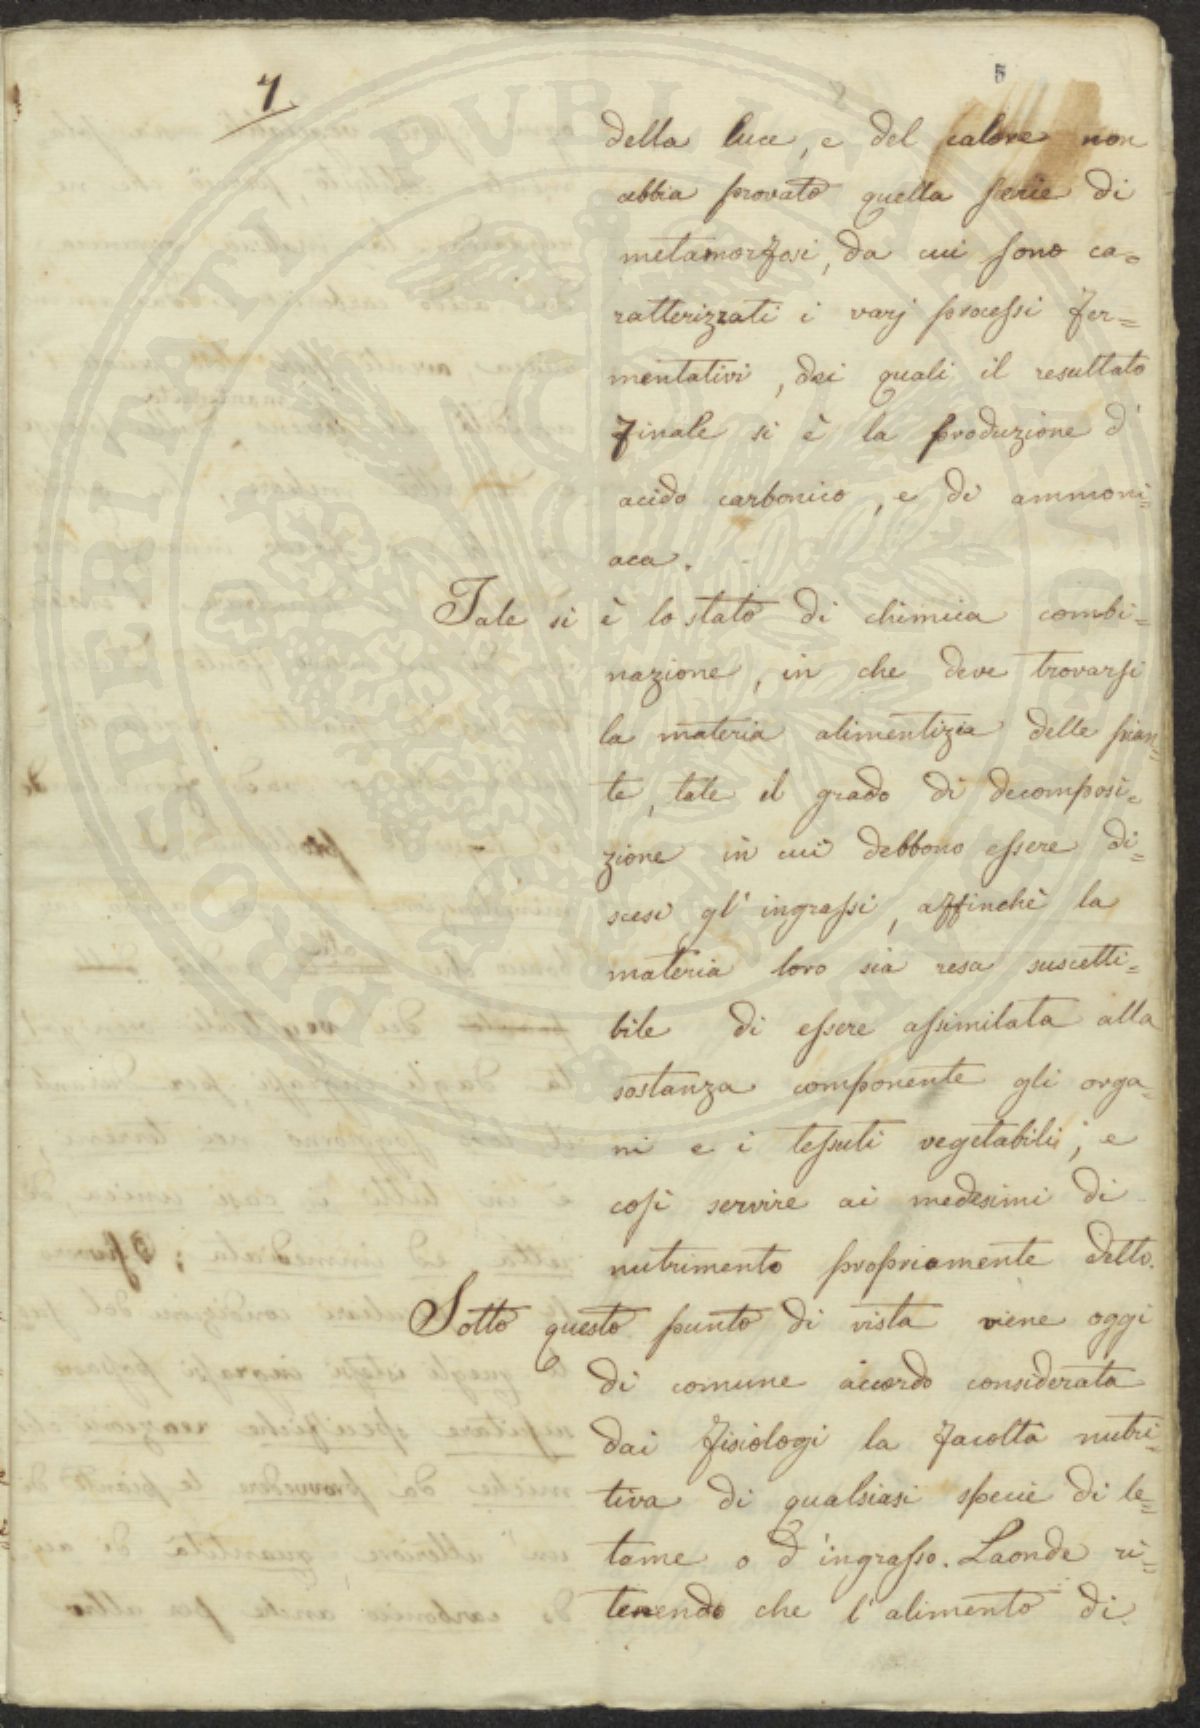 7
5
della luce, e del calore non
abbia provato quella serie di
metamorfosi, da cui sono ca=
ratterizzati i varj processi fer=
mentativi, dei quali il resultato
finale si è la produzione d'
acido carbonico, e di ammoni=
aca.
Tale si è lo stato di chimica combi=
nazione, in che deve trovarsi
la materia alimentizia delle pian=
te, tale il grado di decomposi=
zione in cui debbono essere di=
scesi gl'ingrassi, affinchè la
materia loro sia resa suscetti=
bile di essere assimilata alla
sostanza componente gli orga=
ni e i tessuti vegetabili; e
così servire ai medesimi di
nutrimento propriamente detto.
Sotto questo punto di vista viene oggi
di comune accordo considerata
dai fisiologi la facoltà nutri=
tiva di qualsiasi specie di le=
tame o d'ingrasso. Laonde ri=
tenendo che l'alimento di
PROSPERITATI PUBLICAE AUGENDAE